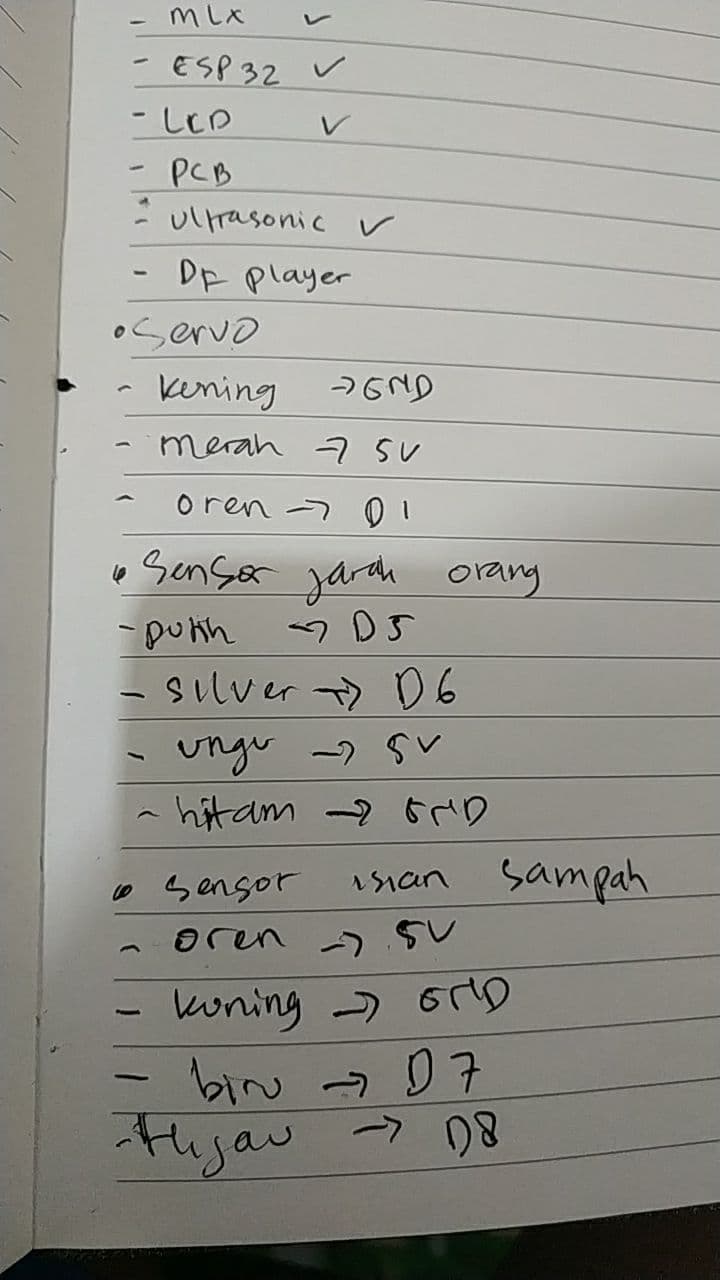 - MLX ✓
- ESP32 ✓
- LCD ✓
- PCB
- Ultrasonic ✓
- DF player
• Servo
- kuning → GND
- merah → 5V
- oren → D1
• Sensor jarak orang
- putih → D5
- silver → D6
- ungu → 5V
- hitam → GND
• Sensor isian sampah
- oren → 5V
- kuning → GND
- biru → D7
- Hijau → D8